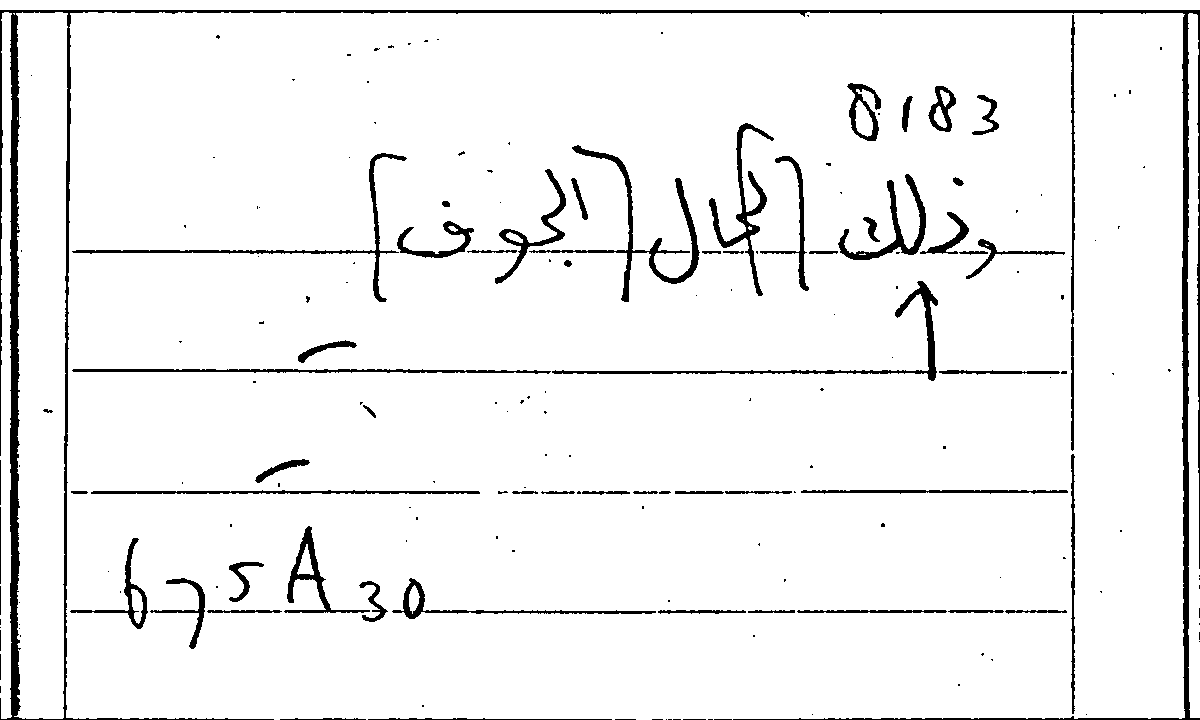 8183
وذلك [المجال] الجوف]
675A30